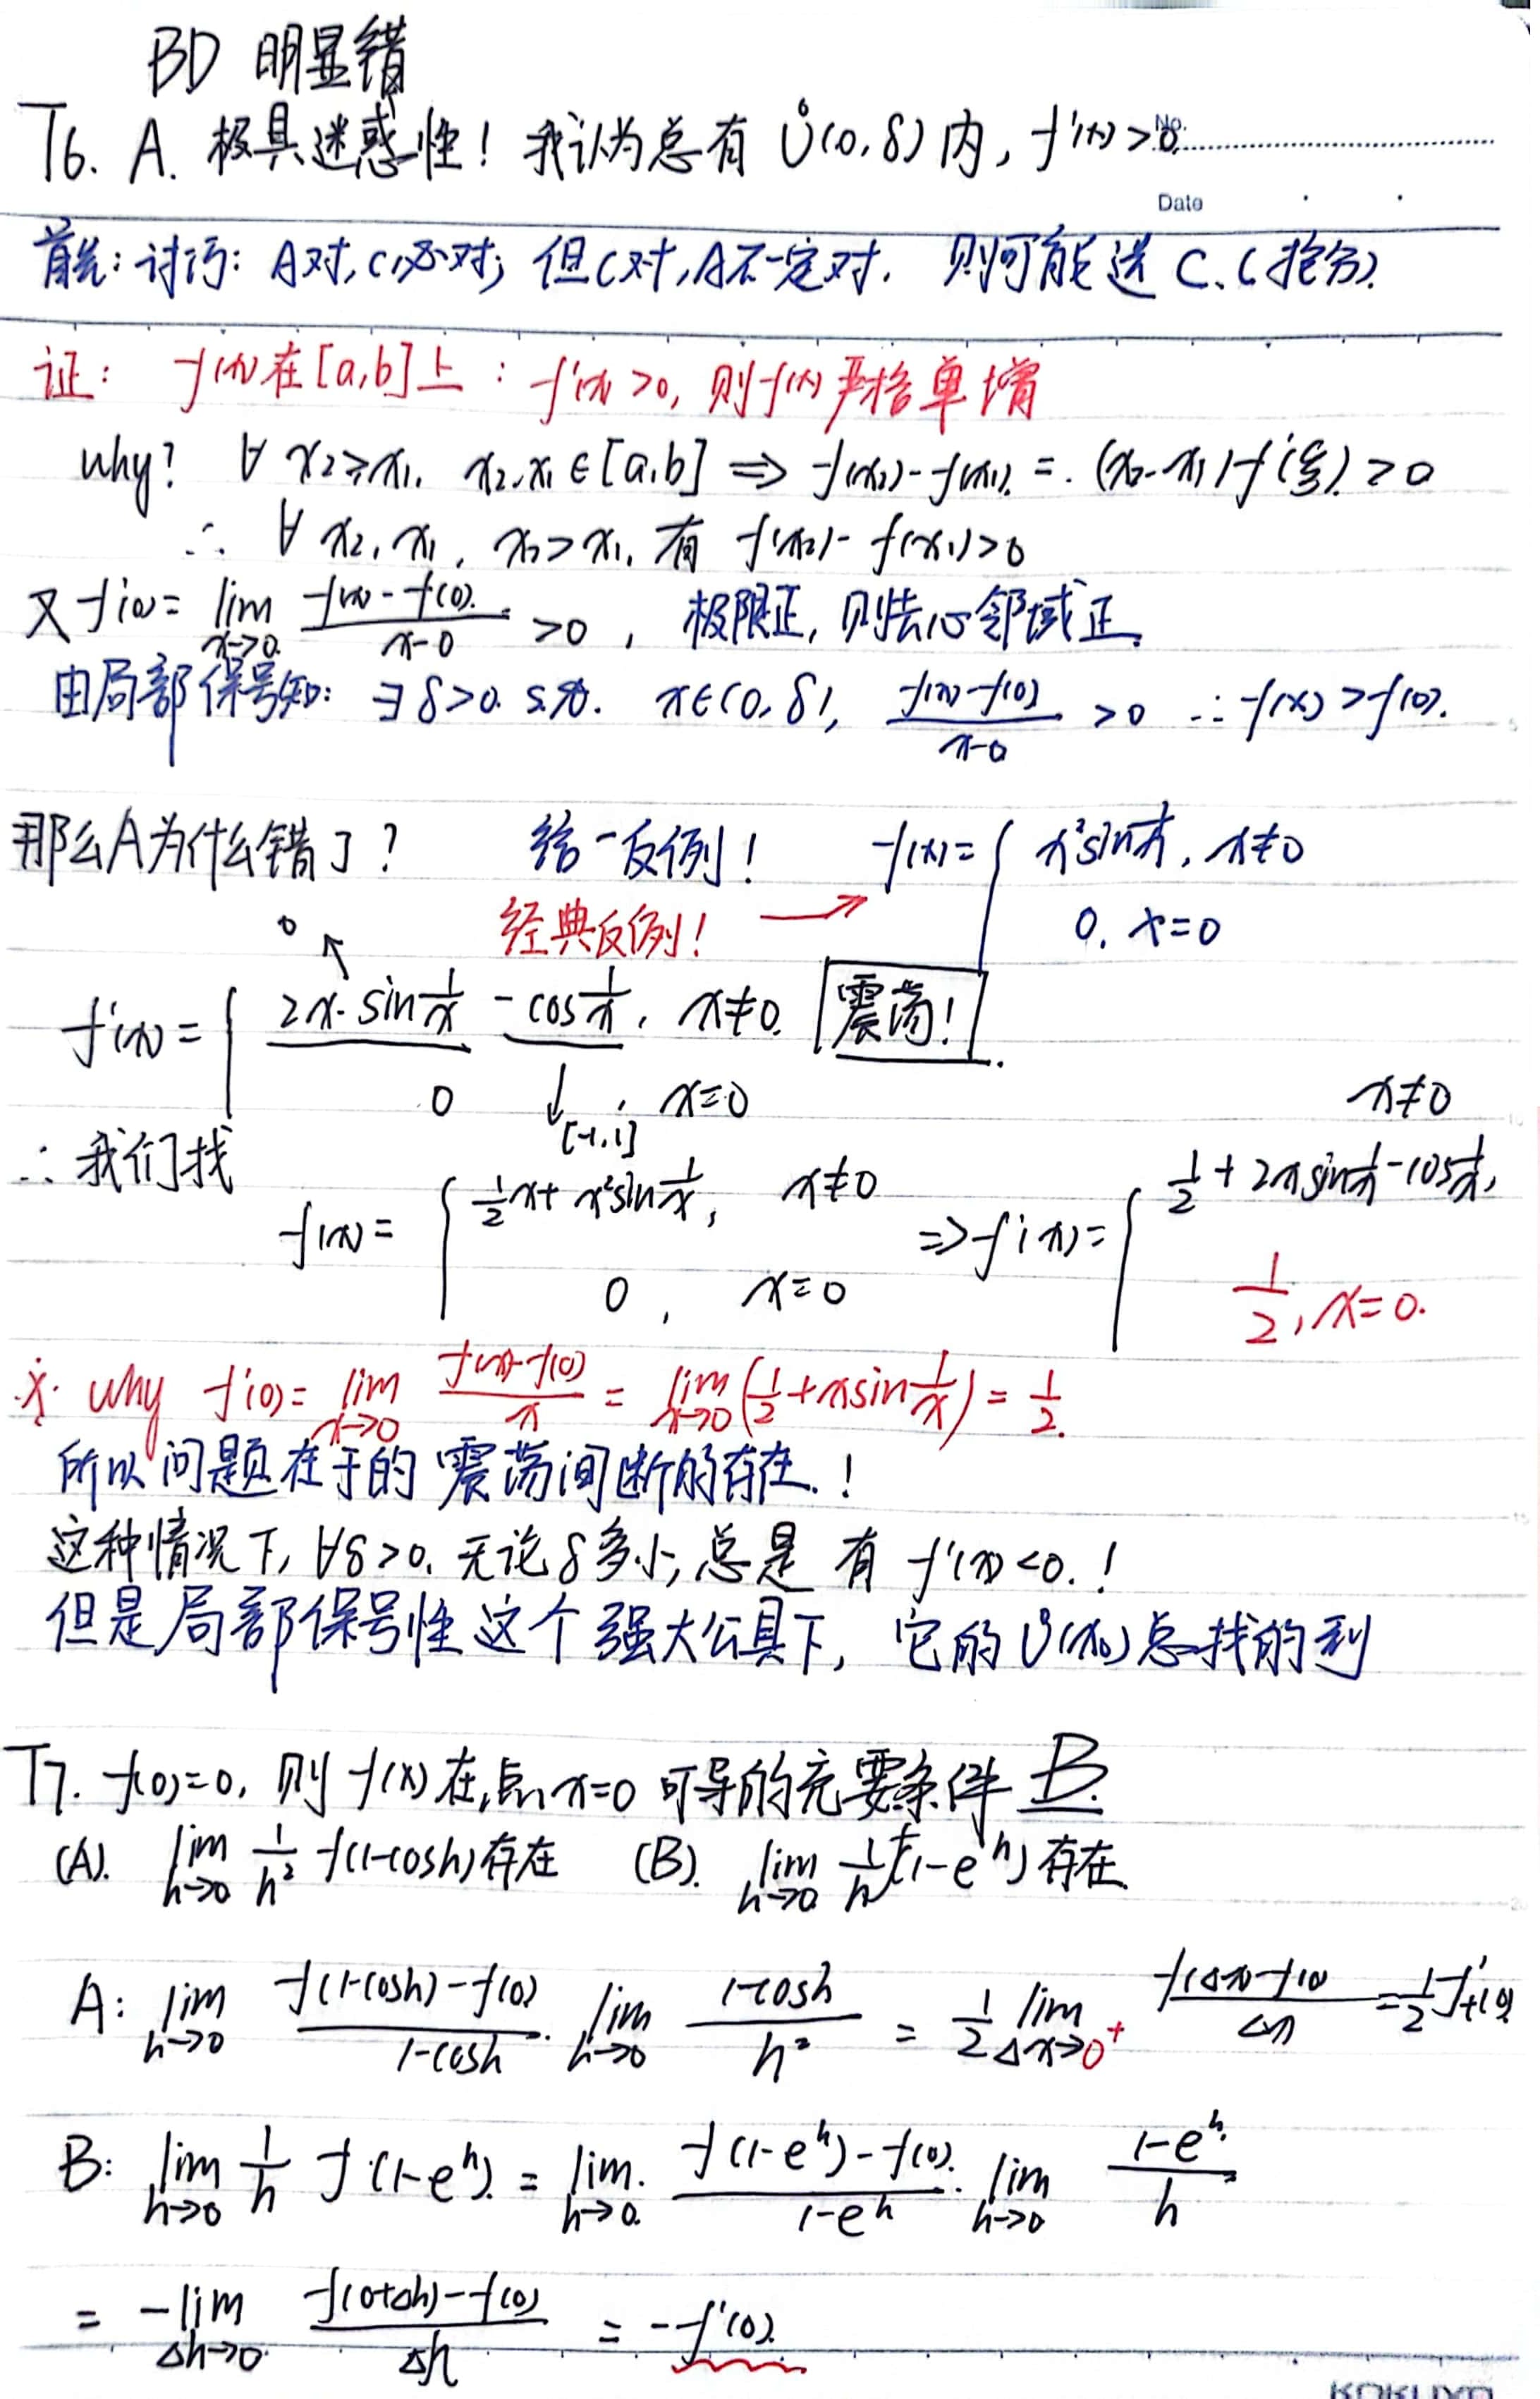 BD 明显错
T6. A. 极具迷惑性! 我认为总有 Ů(0,δ) 内, f'(x)>0.
No.
Date
首先: 讨巧: A对, C必对; 但C对, A不一定对. 则可能选 C. (抢分).
证: f(x) 在 [a,b] 上: f'(x)>0, 则 f(x) 严格单增
why? ∀ x₂≥x₁, x₂,x₁∈[a,b] ⇒ f(x₂)-f(x₁) = (x₂-x₁)f'(ξ) ≥0
∴ ∀ x₂,x₁, x₂>x₁, 有 f(x₂)-f(x₁)>0
又 f'(0)= lim_{x→0} (f(x)-f(0))/(x-0) >0, 极限正, 则去心邻域正.
由局部保号知: ∃δ>0. s.t. x∈(0,δ), (f(x)-f(0))/(x-0) >0 ∴ f(x)>f(0).
那么A为什么错了? 给一反例! f(x)= { x²sin 1/x, x≠0
经典反例! → 0, x=0
0 ↖
f'(x)= { 2x·sin 1/x - cos 1/x, x≠0. 震荡!
0 , x=0
↓ [-1,1]
∴ 我们找
f(x)= { 1/2 x + x²sin 1/x, x≠0 ⇒ f'(x)= { 1/2 + 2x sin 1/x - cos 1/x, x≠0
0, x=0 1/2, x=0.
※ why f'(0)= lim_{x→0} (f(x)-f(0))/x = lim_{x→0} (1/2 + x sin 1/x) = 1/2.
所以问题在于的 震荡间断的存在.!
这种情况下, ∀δ>0. 无论δ多小, 总是 有 f'(x)<0.!
但是局部保号性这个强大公具下, 它的 Ů(x₀)总找的到
T7. f(0)=0, 则 f(x) 在点 x=0 可导的充要条件 B.
(A). lim_{h→0} 1/h² f(1-cosh) 存在 (B). lim_{h→0} 1/h f(1-eʰ) 存在.
A: lim_{h→0} (f(1-cosh)-f(0))/(1-cosh) · lim_{h→0} (1-cosh)/h² = 1/2 lim_{Δx→0⁺} (f(Δx)-f(0))/Δx = 1/2 f'₊(0)
B: lim_{h→0} 1/h f(1-eʰ) = lim_{h→0} (f(1-eʰ)-f(0))/(1-eʰ) · lim_{h→0} (1-eʰ)/h
= -lim_{Δh→0} (f(0+Δh)-f(0))/Δh = -f'(0).
KOKUYO